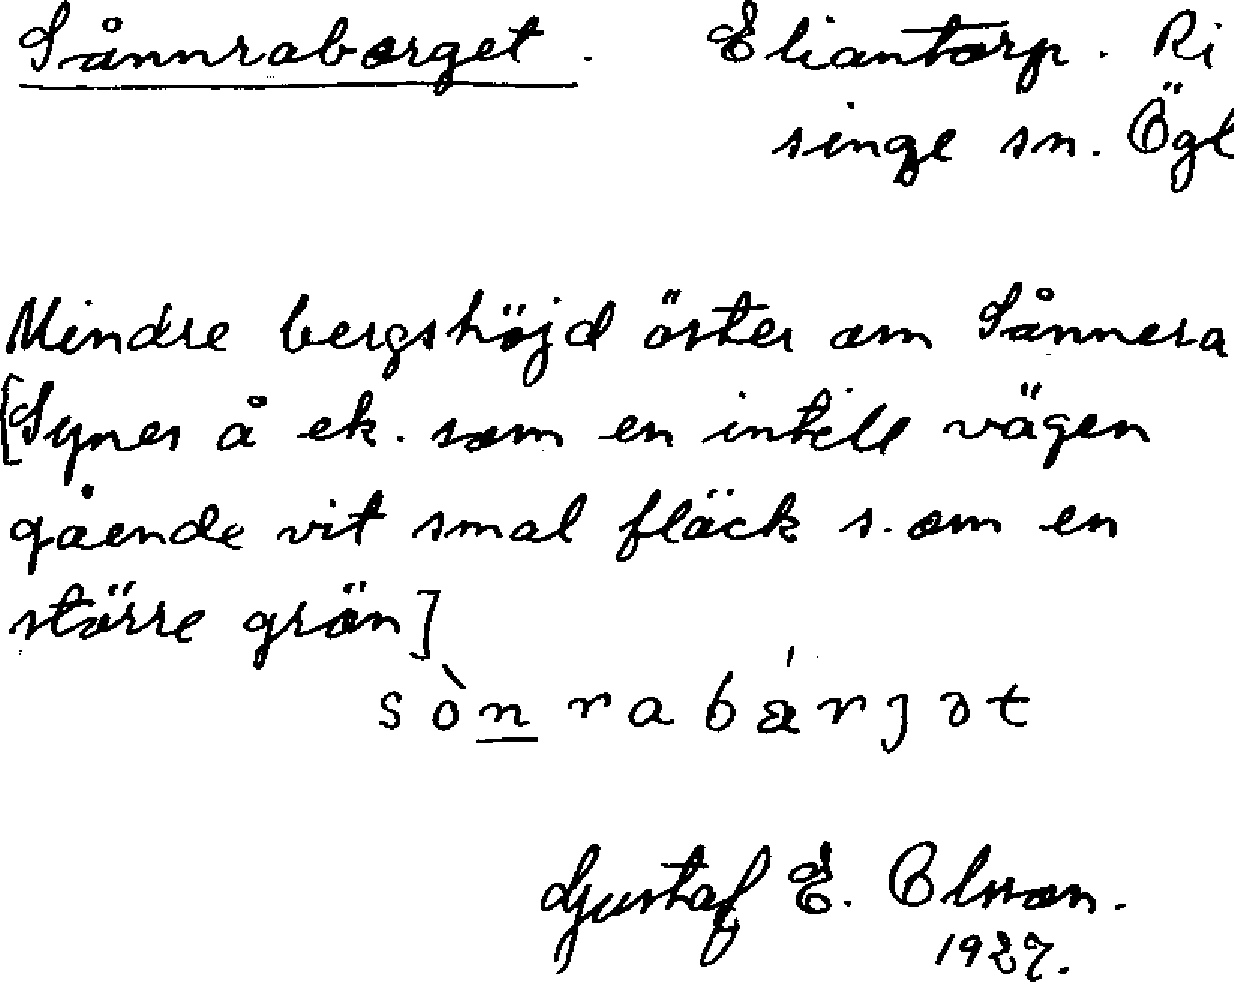 Sånnraberget. Eliantorp. Ri
singe sn. Ögl
Mindre bergshöjd öster om Sånnera
[Synes å ek. som en intill vägen
gående vit smal fläck s. om en
större grön]
sònrabárȷət
Gustaf E. Olsson.
1927.